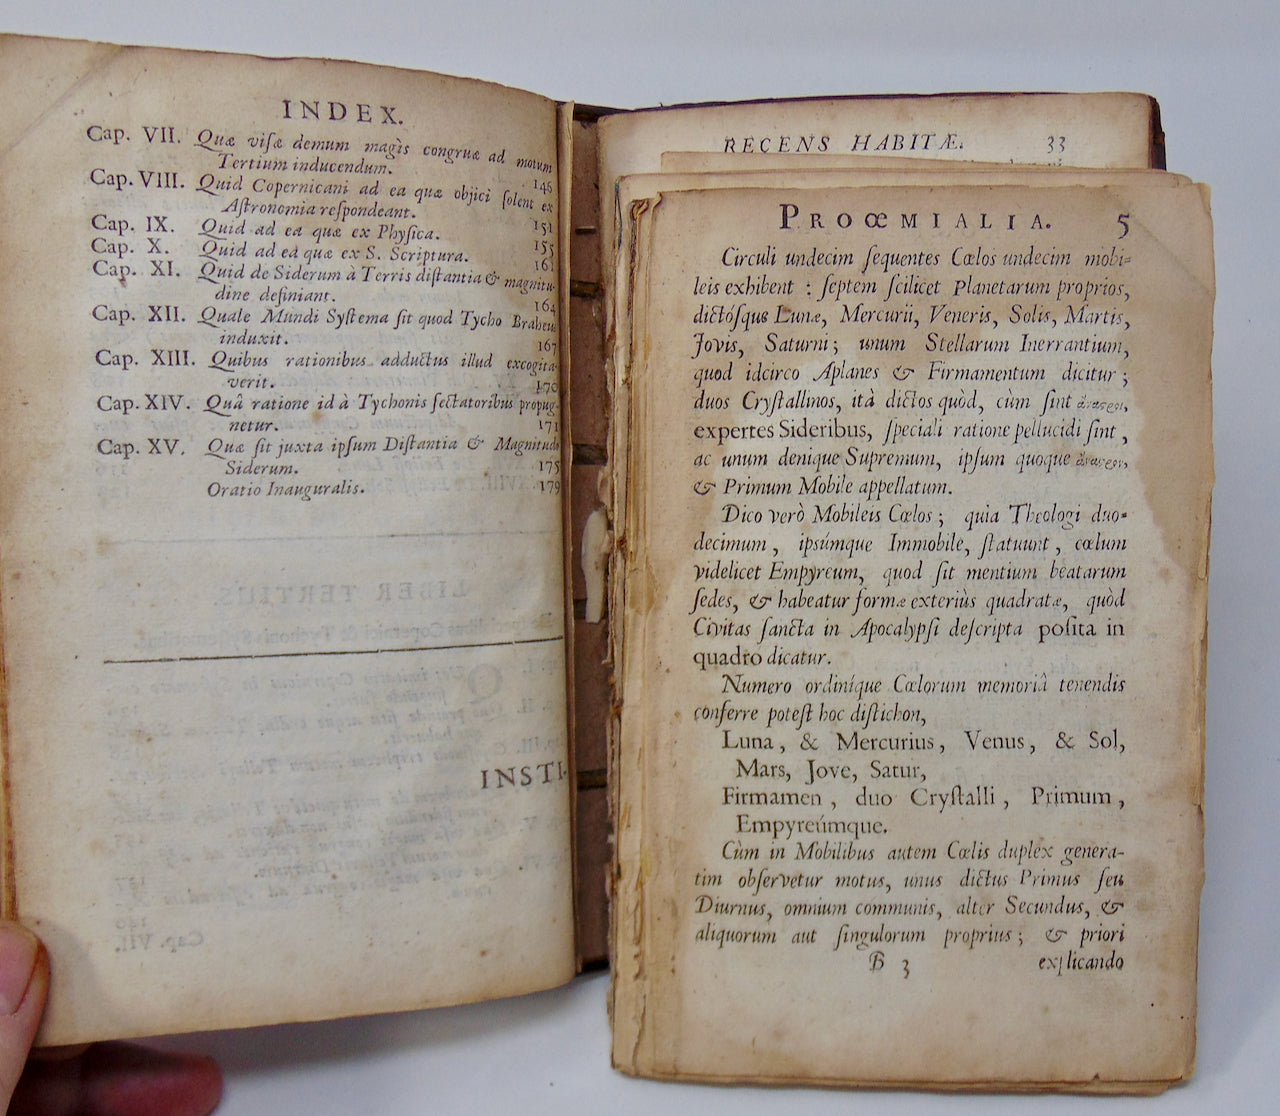 INDEX.
Cap. VII. Quæ visæ demum magìs congruæ ad motum
Tertium inducendum. 146
Cap. VIII. Quid Copernicani ad ea quæ objici solent ex
Astronomia respondeant. 151
Cap. IX. Quid ad ea quæ ex Physica. 155
Cap. X. Quid ad ea quæ ex S. Scriptura. 161
Cap. XI. Quid de Siderum à Terris distantia & magnitu-
dine definiant. 164
Cap. XII. Quale Mundi Systema sit quod Tycho Braheus
induxit. 167
Cap. XIII. Quibus rationibus adductus illud excogita-
verit. 170
Cap. XIV. Quâ ratione id à Tychonis sectatoribus propug-
netur. 171
Cap. XV. Quæ sit juxta ipsum Distantia & Magnitudo
Siderum. 175
Oratio Inauguralis. 179
INSTI-
RECENS HABITÆ. 33
PROŒMIALIA. 5
Circuli undecim sequentes Cœlos undecim mobi-
leis exhibent : septem scilicet Planetarum proprios,
dictósque Lunæ, Mercurii, Veneris, Solis, Martis,
Jovis, Saturni; unum Stellarum Inerrantium,
quod idcirco Aplanes & Firmamentum dicitur;
duos Crystallinos, ità dictos quòd, cùm sint
expertes Sideribus, speciali ratione pellucidi sint,
ac unum denique Supremum, ipsum quoque
& Primum Mobile appellatum.
Dico verò Mobileis Cœlos; quia Theologi duo-
decimum, ipsúmque Immobile, statuunt, cœlum
videlicet Empyreum, quod sit mentium beatarum
sedes, & habeatur formæ exteriùs quadratæ, quòd
Civitas sancta in Apocalypsi descripta posita in
quadro dicatur.
Numero ordinique Cœlorum memoriâ tenendis
conferre potest hoc distichon,
Luna, & Mercurius, Venus, & Sol,
Mars, Jove, Satur,
Firmamen, duo Crystalli, Primum,
Empyreúmque.
Cùm in Mobilibus autem Cœlis duplex genera-
tim observetur motus, unus dictus Primus seu
Diurnus, omnium communis, alter Secundus, &
aliquorum aut singulorum proprius; & priori
B 3 explicando